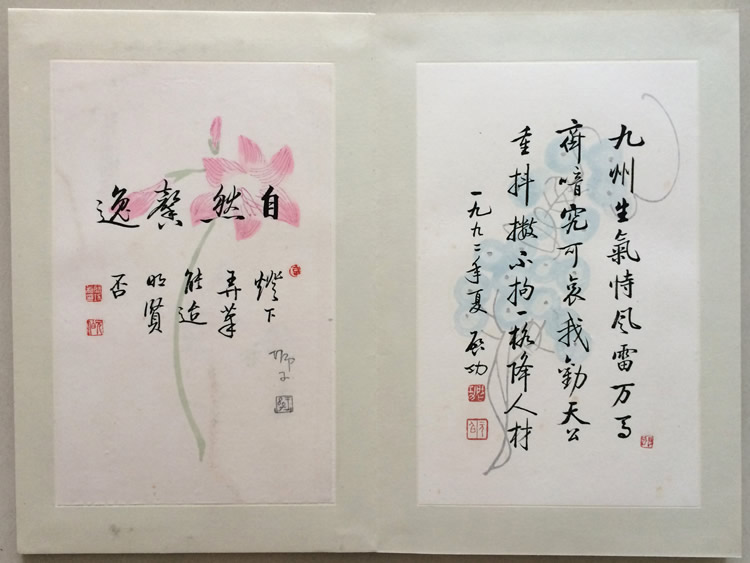 九州生氣恃风雷万马
齊喑究可哀我勸天公
重抖擻不拘一格降人材
一九九二年夏 啟功
自然馨逸
燈下
弄筆
能
賢
否